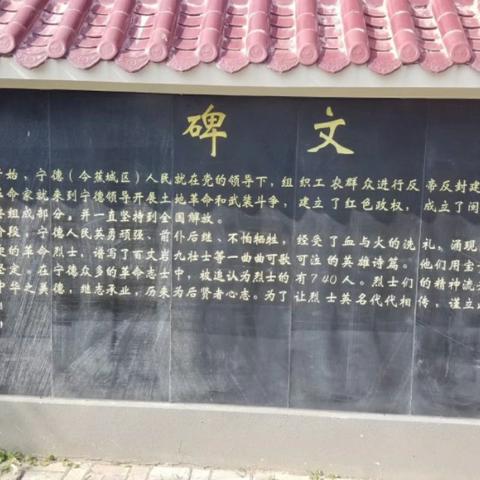 碑文
开始，宁德（今蕉城区）人民就在党的领导下，组织工农群众进行反帝反封建
革命家就来到宁德领导开展土地革命和武装斗争，建立了红色政权，成立了闽
要组成部分，并一直坚持到全国解放。
阶段，宁德人民英勇顽强、前仆后继、不怕牺牲，经受了血与火的洗礼，涌现
的革命烈士，谱写了百丈岩九壮士等一曲曲可歌可泣的英雄诗篇。他们用宝
定。在宁德众多的革命志士中，被追认为烈士的有740人。烈士们的精神流
中华之美德，继志承业，历来为后贤者心志。为了让烈士英名代代相传，谨立